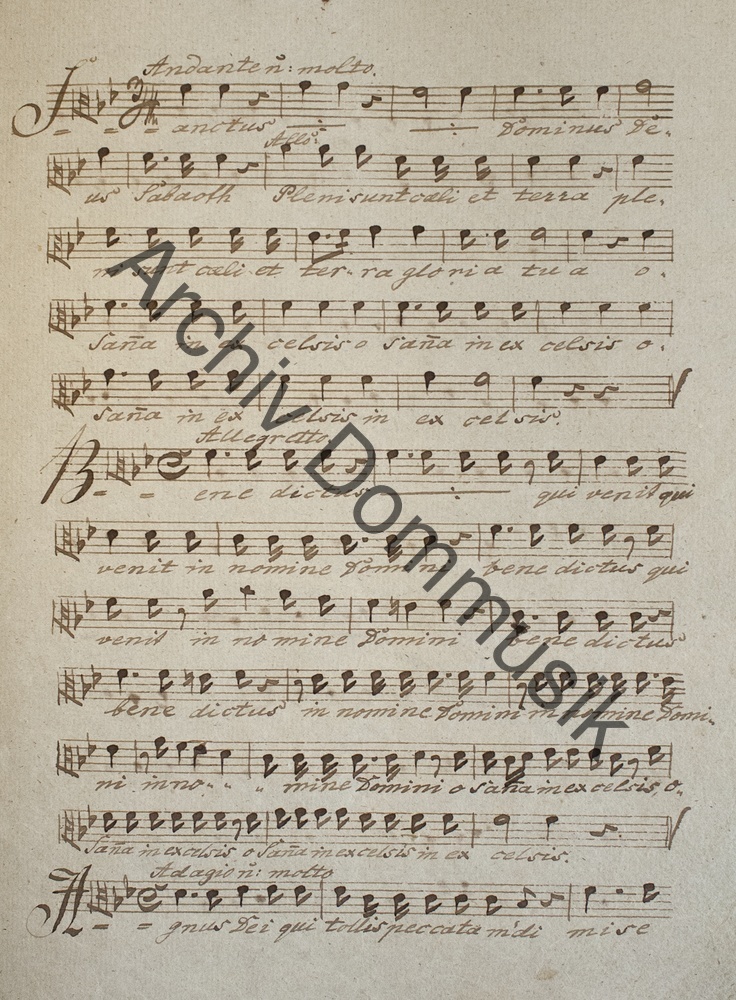 Andante ñ: molto.
S anctus Dominus De-
Allo:
us Sabaoth Pleni sunt cæli et terra ple-
ni sunt cæli et ter- ra gloria tua o-
sana in ex celsis o sana in ex celsis o-
sana in ex celsis in ex cel sis.
Allegretto
B ene dictus qui venit qui
venit in nomine Domini bene dictus qui
venit in no mine Domini bene dictus
bene dictus in nomine Domini in nomine Domi-
ni in no- mine Domini o sana in excelsis, o-
sana in excelsis o sana in excelsis in ex celsis.
Adagio ñ: molto
A gnus Dei qui tollis peccata mdi mise
Archiv Dommusik